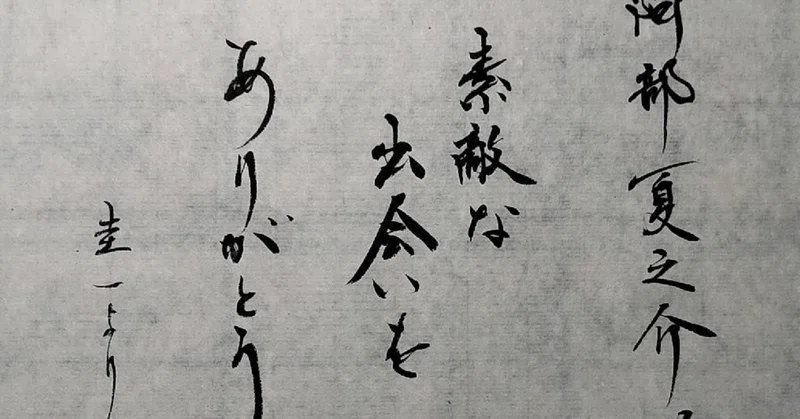 阿部夏之介
素敵な
出会いを
ありがとう
圭一より